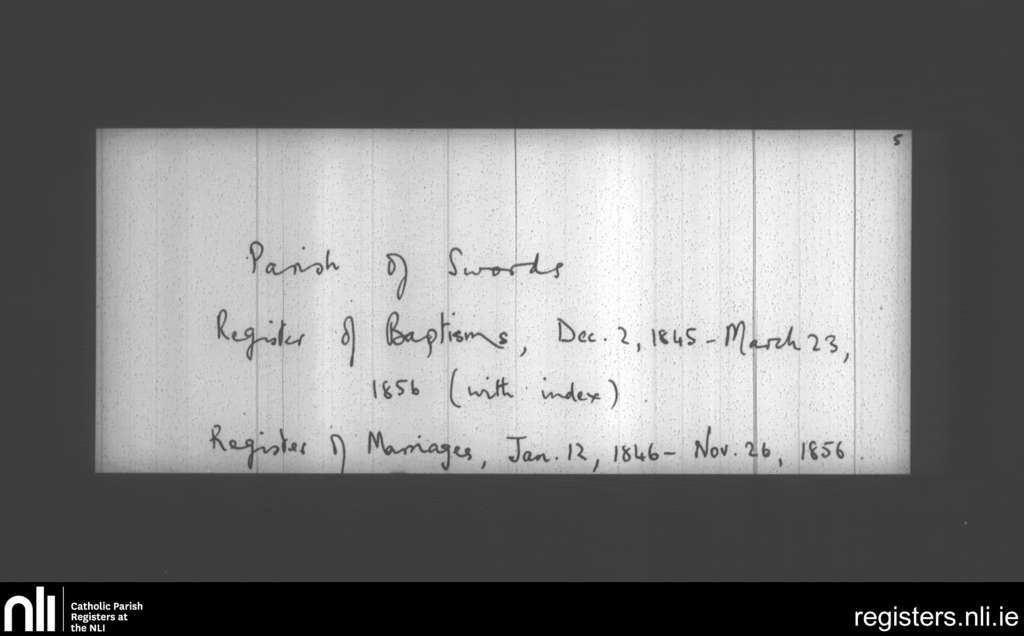 5
Parish of Swords
Register of Baptisms, Dec. 2, 1845 - March 23,
1856 (with index)
Register of Marriages, Jan. 12, 1846 - Nov. 26, 1856.
nli
Catholic Parish
Registers at
the NLI
registers.nli.ie